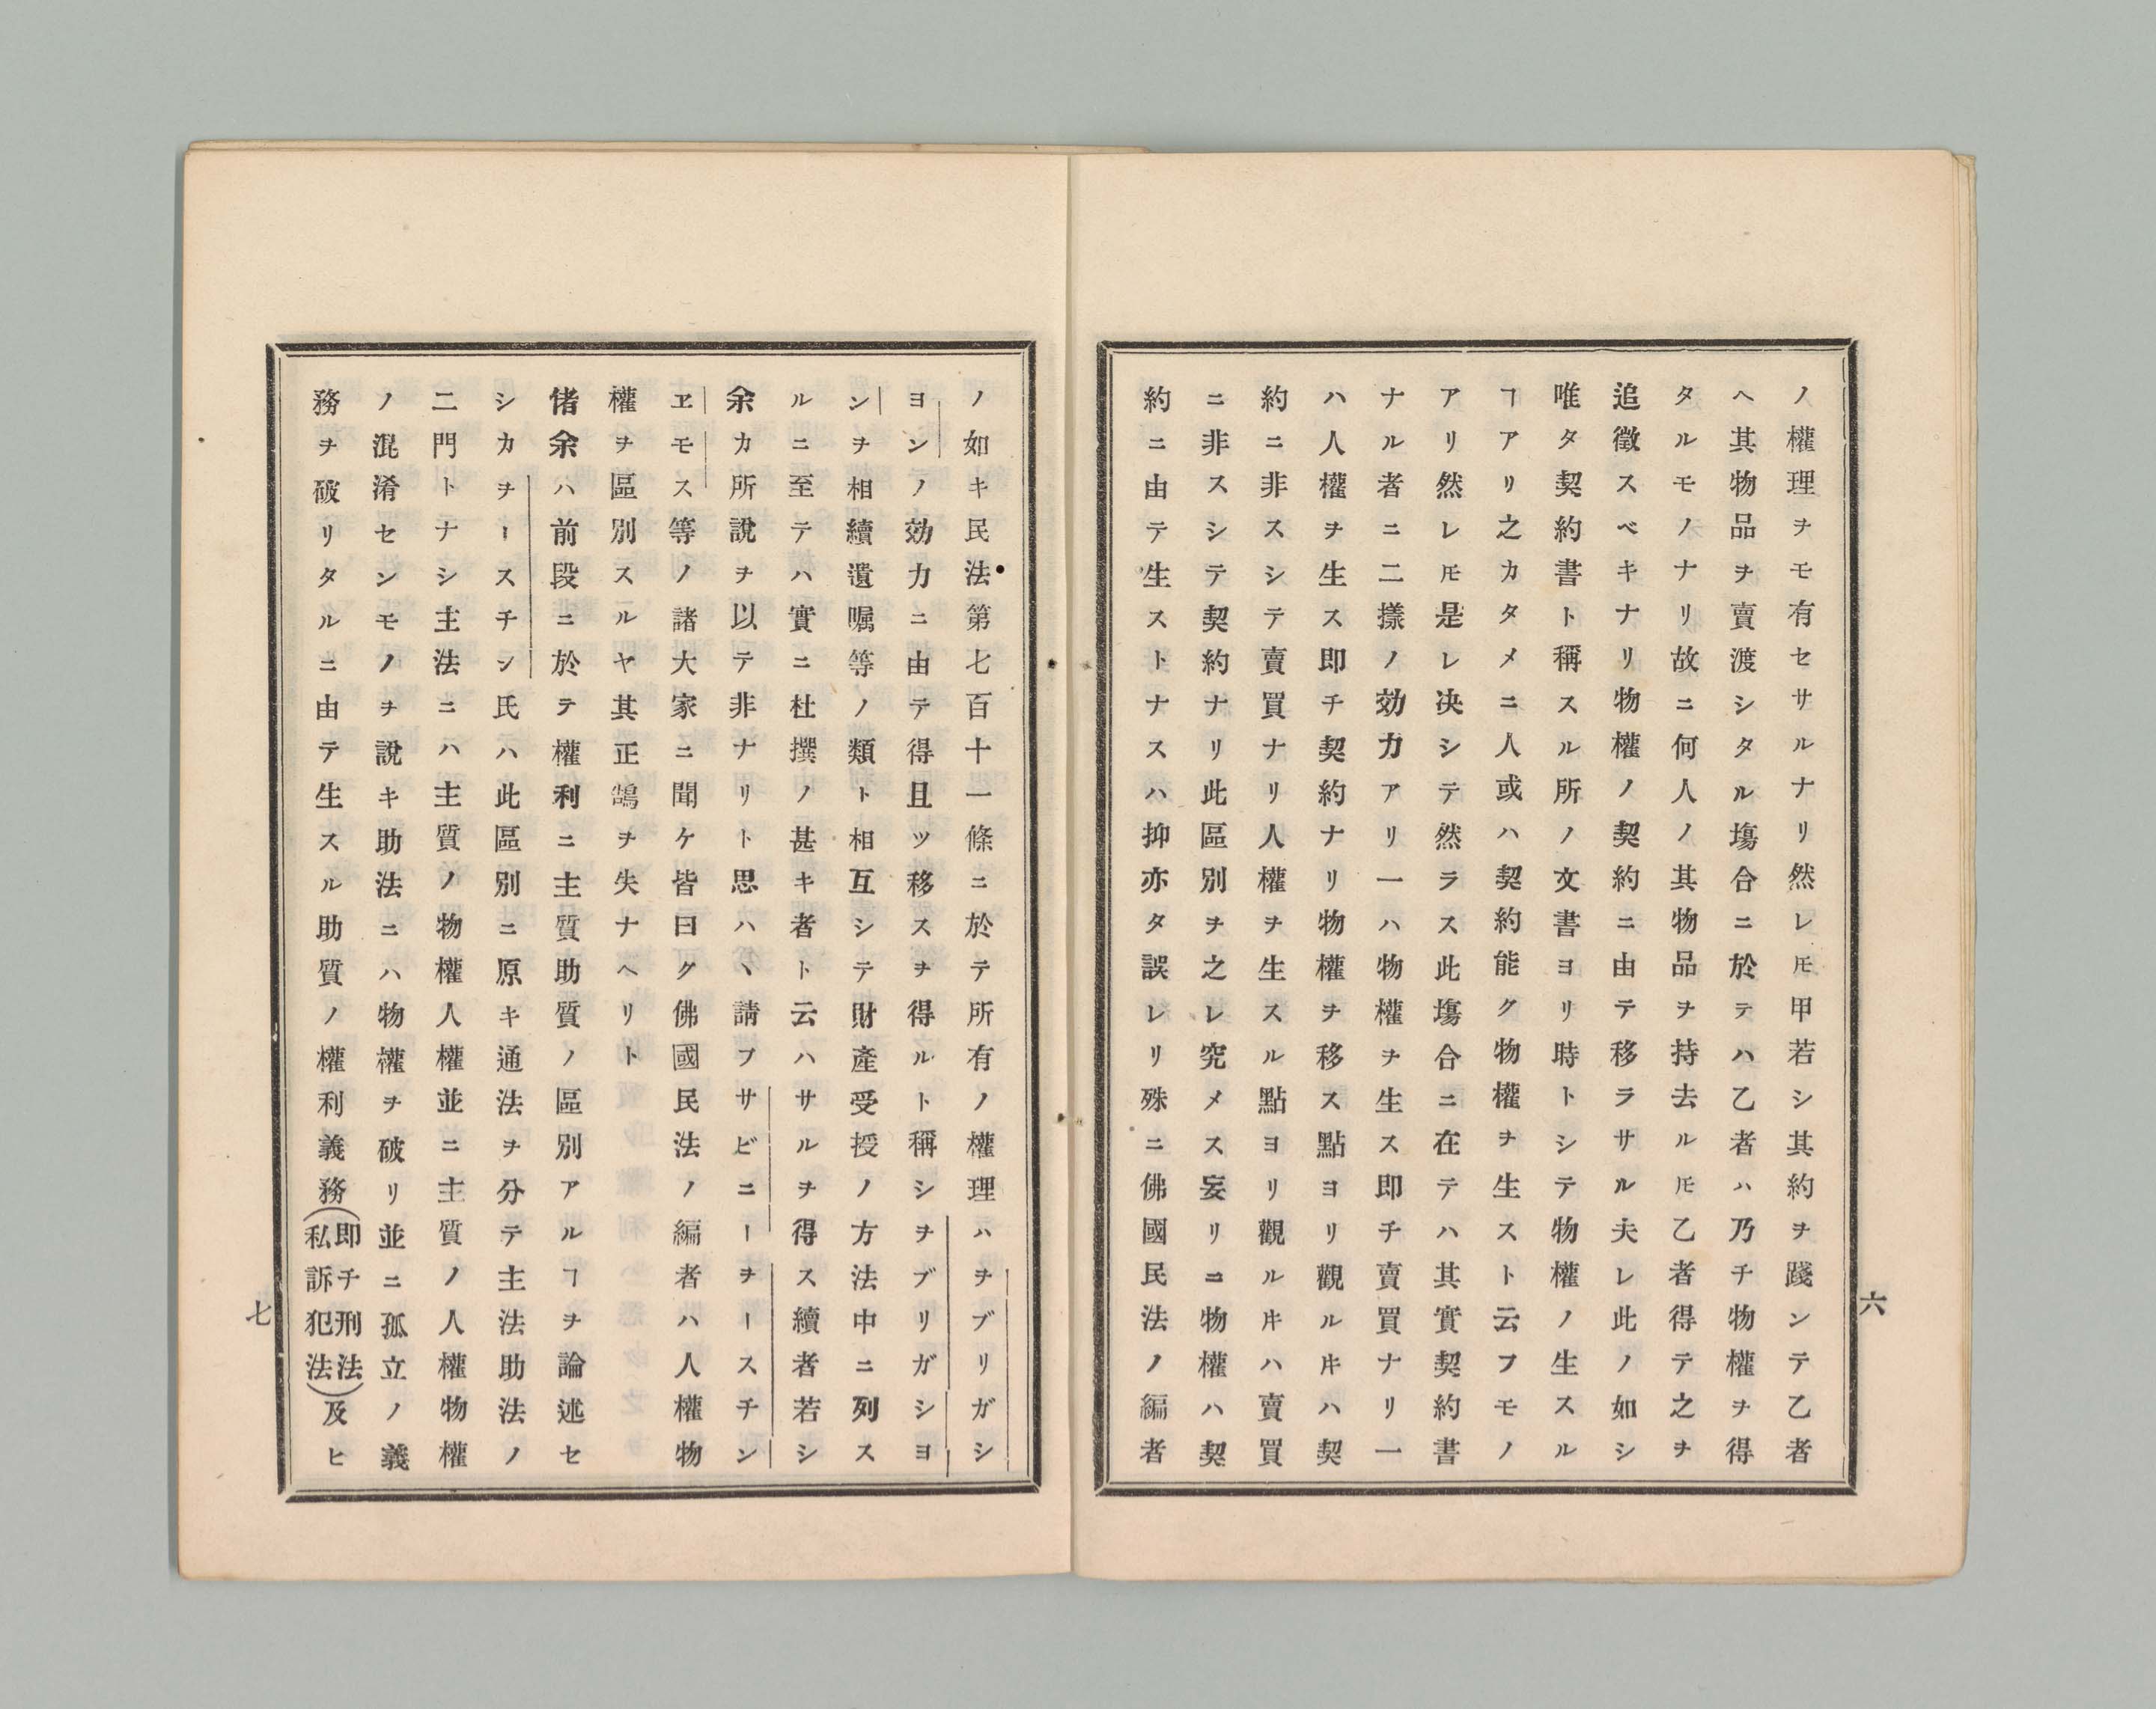 ノ權理ヲモ有セサルナリ然レ𪜈甲若シ其約ヲ踐ンテ乙者
ヘ其物品ヲ賣渡シタル塲合ニ於テハ乙者ハ乃チ物權ヲ得
タルモノナリ故ニ何人ノ其物品ヲ持去ル𪜈乙者得テ之ヲ
追徵スベキナリ物權ノ契約ニ由テ移ラサル夫レ此ノ如シ
唯タ契約書ト稱スル所ノ文書ヨリ時トシテ物權ノ生スル
ヿアリ之カタメニ人或ハ契約能ク物權ヲ生スト云フモノ
アリ然レ𪜈是レ决シテ然ラス此塲合ニ在テハ其實契約書
ナル者ニ二㨾ノ効力アリ一ハ物權ヲ生ス即チ賣買ナリ一
ハ人權ヲ生ス即チ契約ナリ物權ヲ移ス點ヨリ觀ル𪜀ハ契
約ニ非スシテ賣買ナリ人權ヲ生スル點ヨリ觀ル𪜀ハ賣買
ニ非スシテ契約ナリ此區別ヲ之レ究メス妄リニ物權ハ契
約ニ由テ生ストナスハ抑亦タ誤レリ殊ニ佛國民法ノ編者
六
ノ如キ民法第七百十一條ニ於テ所有ノ權理ハヲブリガシ
ヨンノ効力ニ由テ得且ツ移スヲ得ルト稱シヲブリガシヨ
ンヲ相續遺囑等ノ類ト相互シテ財產受授ノ方法中ニ列ス
ルニ至テハ實ニ杜撰ノ甚キ者ト云ハサルヲ得ス續者若シ
余カ所說ヲ以テ非ナリト思ハヽ請フサビニーヲースチン
ヱモス等ノ諸大家ニ聞ケ皆曰ク佛國民法ノ編者ハ人權物
權ヲ區別スルヤ其正鵠ヲ失ナヘリト
偖余ハ前段ニ於テ權利ニ主質助質ノ區別アルヿヲ論述セ
シカヲースチン氏ハ此區別ニ原キ通法ヲ分テ主法助法ノ
二門トナシ主法ニハ主質ノ物權人權並ニ主質ノ人權物權
ノ混淆センモノヲ說キ助法ニハ物權ヲ破リ並ニ孤立ノ義
務ヲ破リタルニ由テ生スル助質ノ權利義務(即チ刑法私訴犯法)及ヒ
七